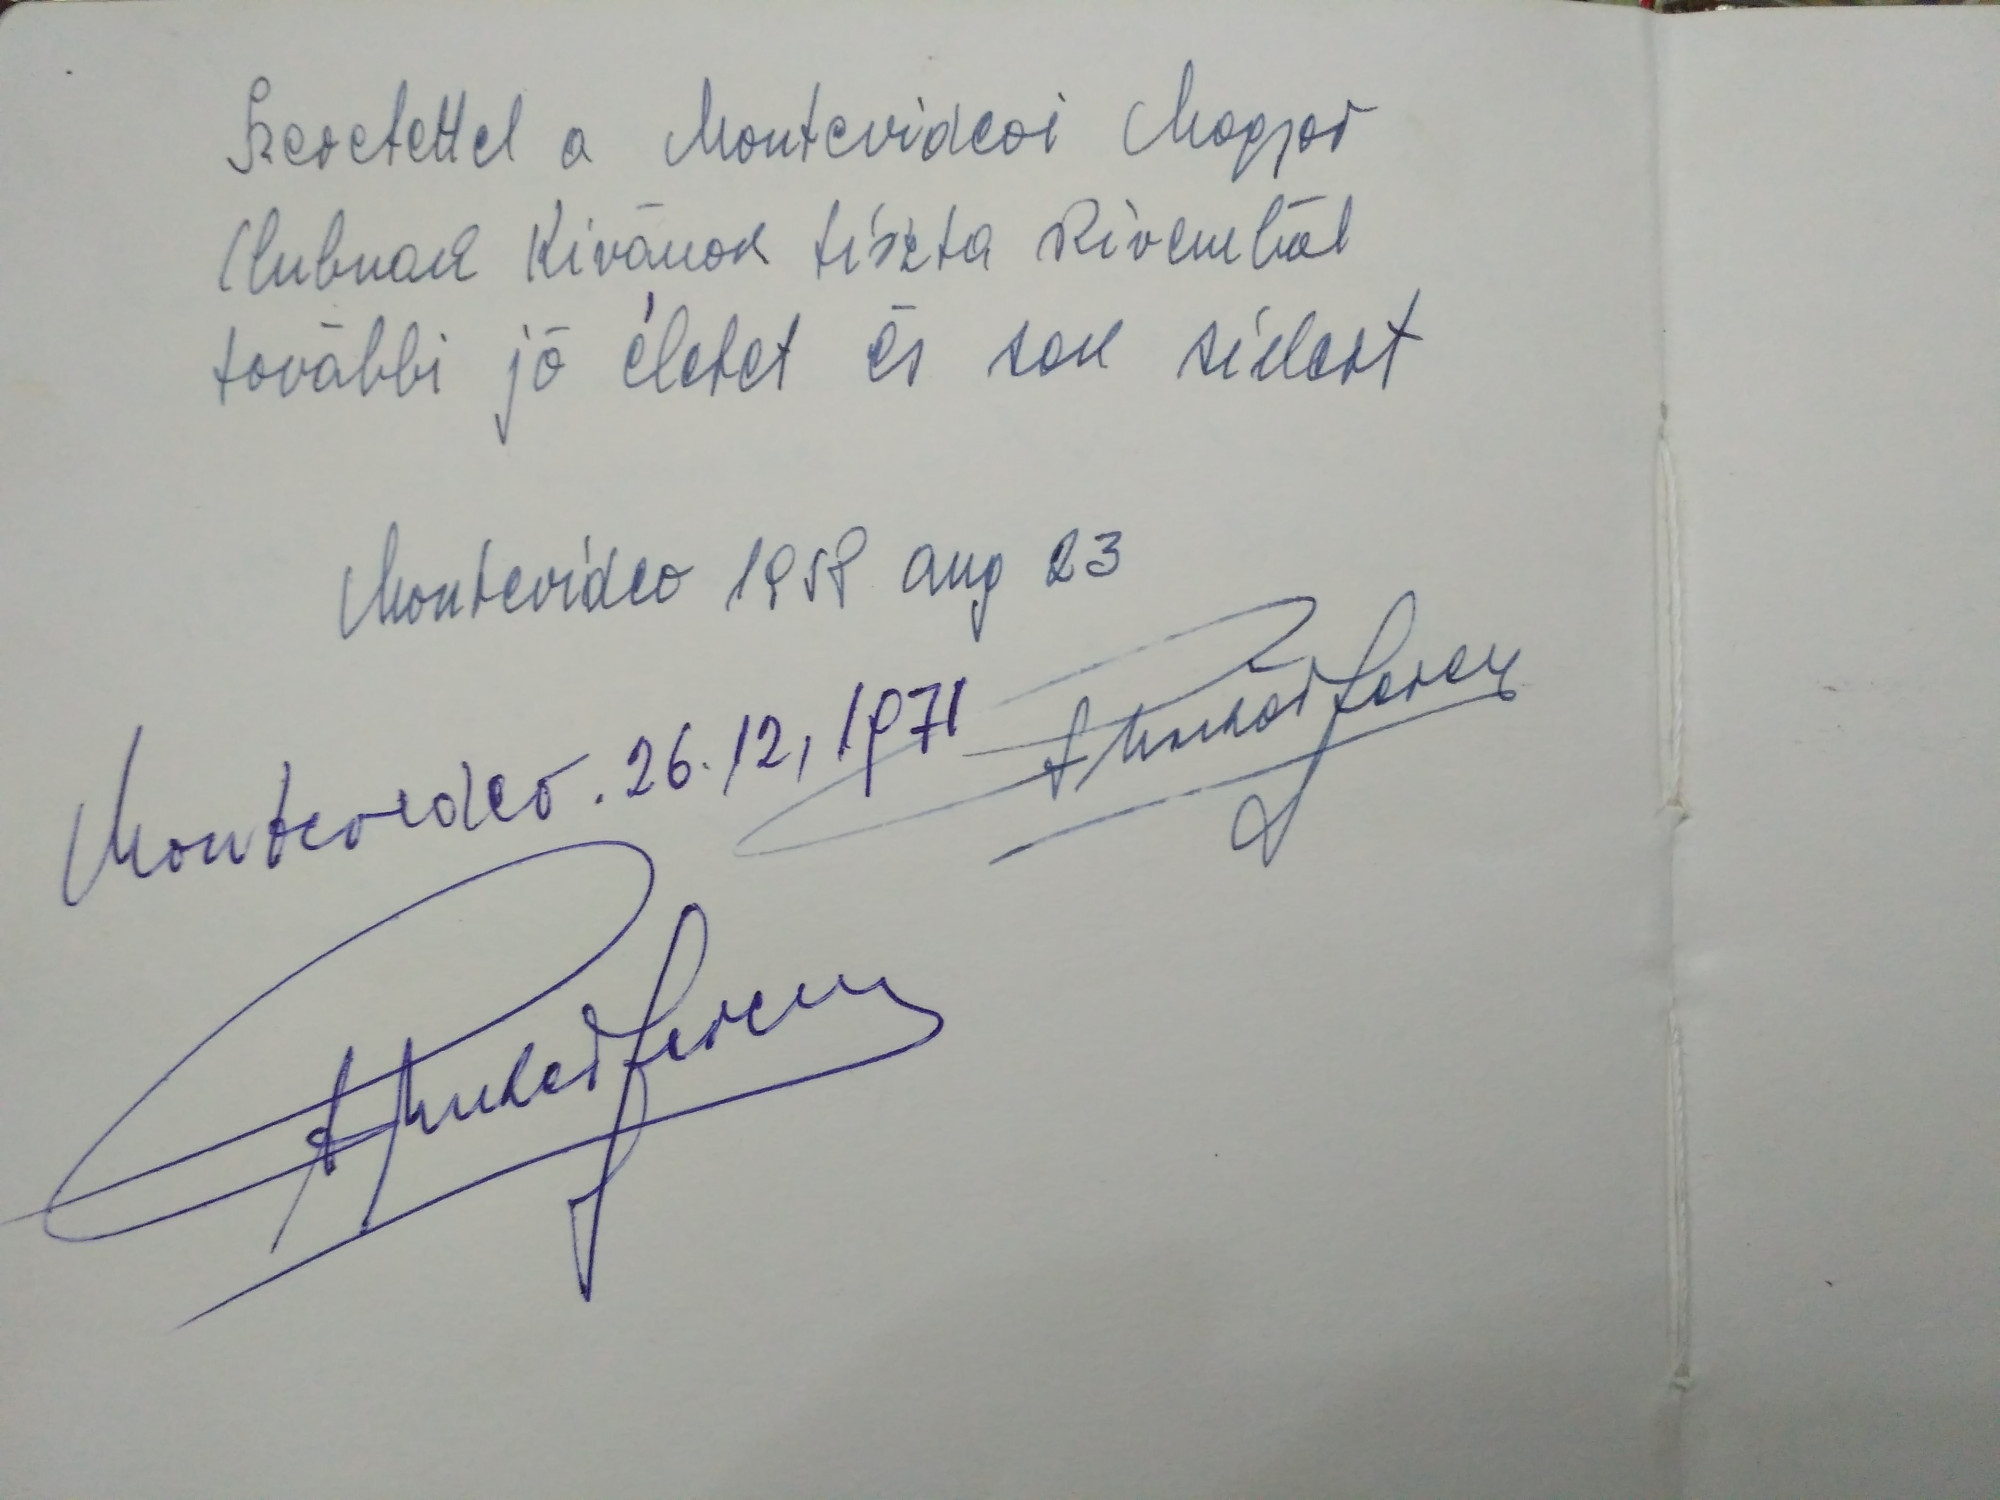 Szeretettel a Montevideoi Magyar
Clubnak Kivánok tiszta Szivemből
további jó életet és sok sikert
Montevideo 1959 aug 23
Montevideo. 26.12, 1971
Puskás Ferenc
Puskás Ferenc